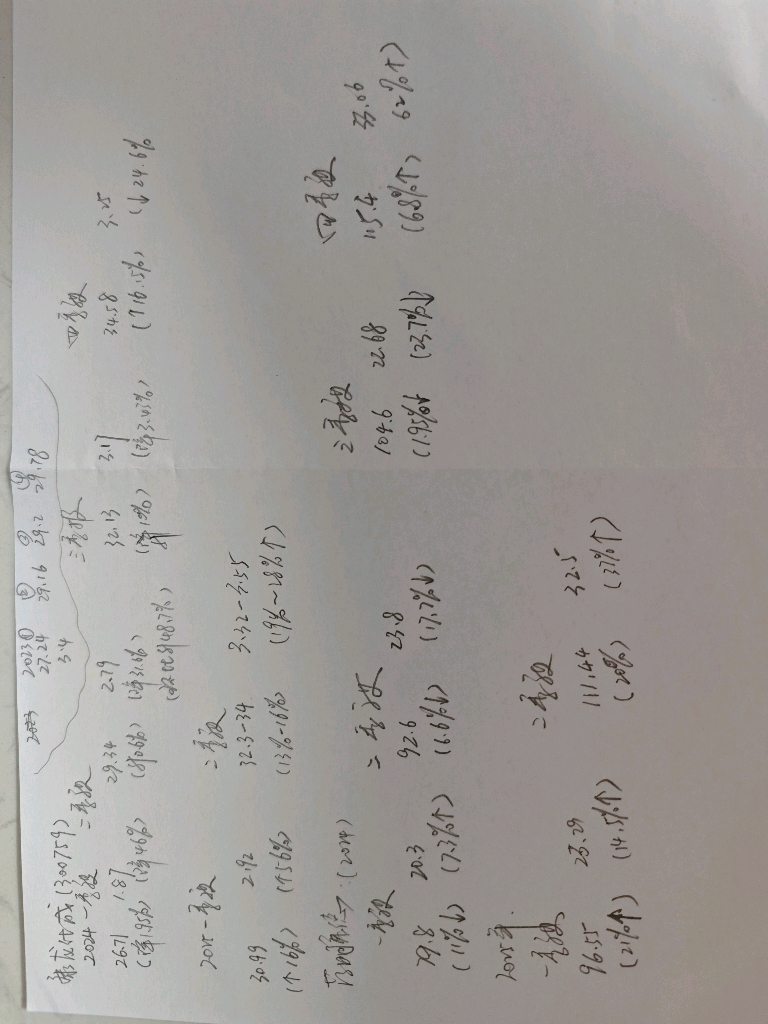 2023 2023① ② ③ ④
27.24 29.16 29.2 29.78
3.4
康龙化成(300759)
2024一季报 二季报 三季报 四季报
26.71 1.87 29.34 2.79 32.13 3.17 34.58 3.25
(降1.95%) (降46%) (升0.6%) (降31.6%) (升10%) (降3.43%) (↑16.15%) (↓24.6%
(环比升48.7%)
2025一季报 二季报
30.99 2.92 32.3-34 3.32-3.55
(↑16%) (↑56%) (13%-16%) (19%~28%↑)
药明康德:(2024)
一季报 二季报 三季报 四季报
79.8 20.3 92.6 23.8 104.6 22.68 115.4 33.06
(11%↓) (7.3%↑) (6.6%↓) (17.7%↓) (1.95%↓ (23.7%↓) (6.8%↑) 62%↑)
2025年
一季报 二季报
96.55 23.29 111.44 32.5
(21%↑) (14.5%↑) (20%) (37%↑)